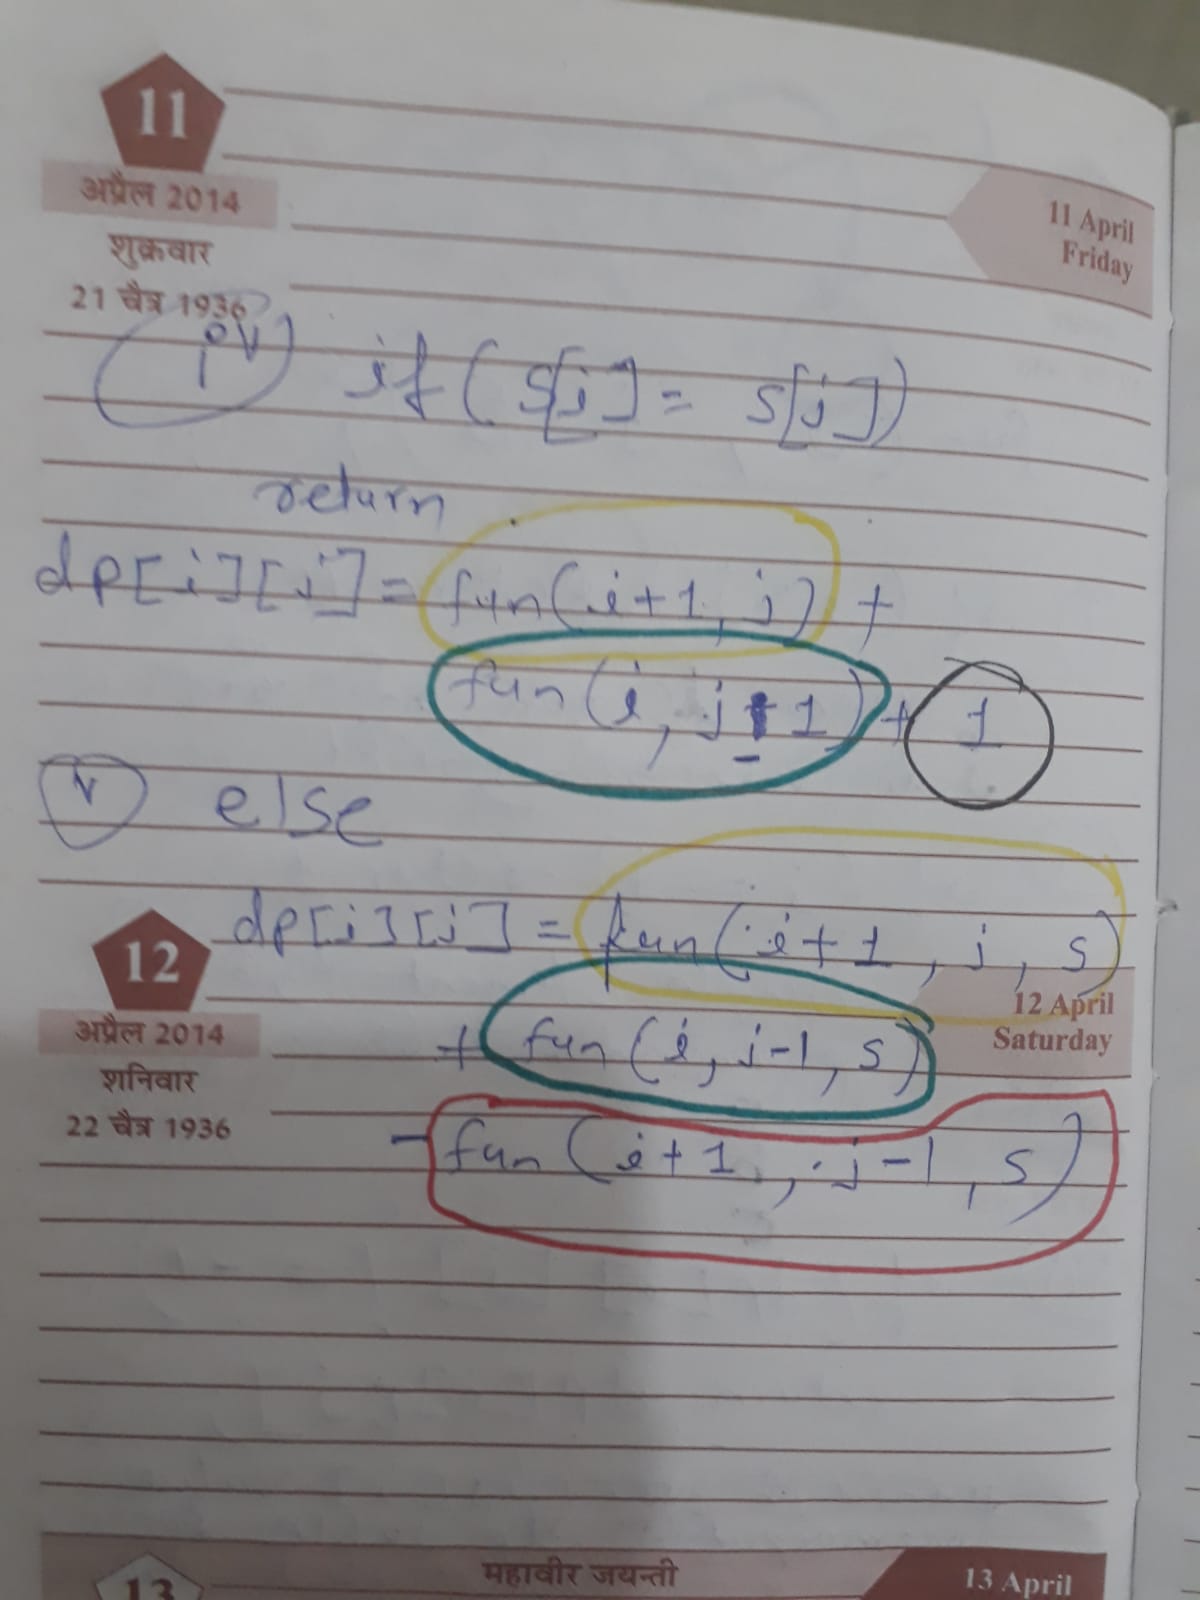 11
अप्रैल 2014
शुक्रवार
21 चैत्र 1936
11 April
Friday
iv) if ( s[i] = s[j] )
return
dp[i][j] = fun(i+1, j) +
fun(i, j-1) + 1
v else
dp[i][j] = fun(i+1, j, s)
12
अप्रैल 2014
शनिवार
22 चैत्र 1936
12 April
Saturday
+ fun(i, j-1, s)
- fun(i+1, j-1, s)
13
महावीर जयन्ती
13 April